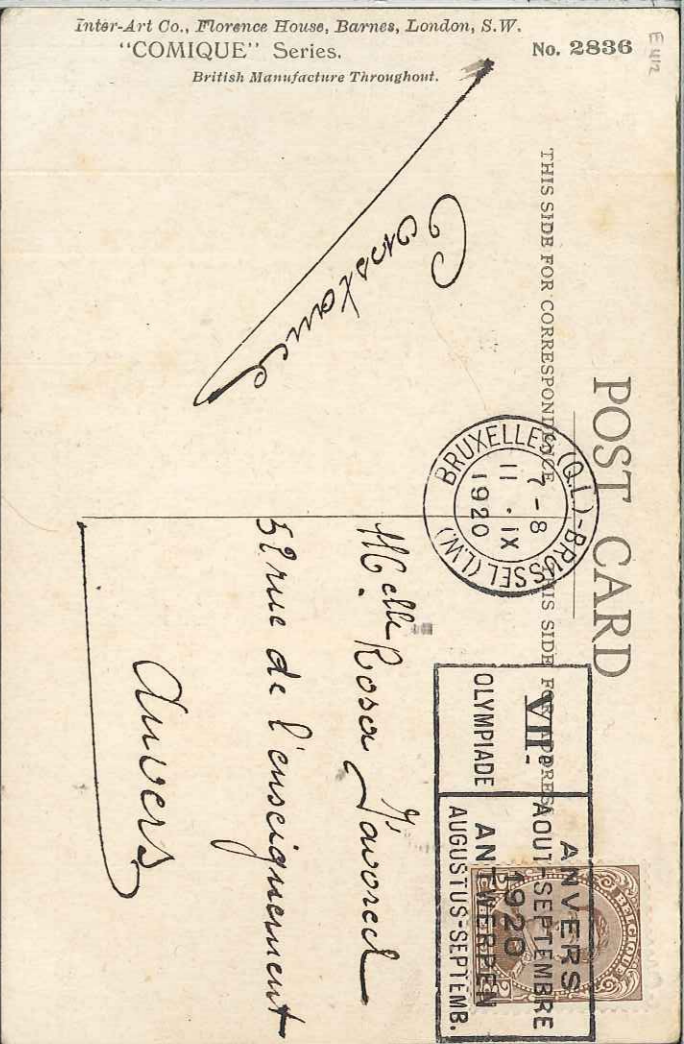 Inter-Art Co., Florence House, Barnes, London, S.W.
"COMIQUE" Series.
No. 2836
British Manufacture Throughout.
E 412
POST CARD
THIS SIDE FOR CORRESPONDENCE
THIS SIDE FOR ADDRESS
BRUXELLES (Q.L.)-BRUSSEL (L.W.)
7-8
11 . IX
1920
VIIE
OLYMPIADE
ANVERS
AOUT-SEPTEMBRE
1920
ANTWERPEN
AUGUSTUS-SEPTEMB.
BELGIQUE
Constance
Melle Rosa
52 rue de l'enseignement
Anvers